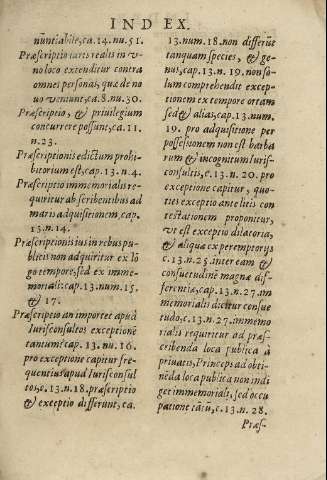 INDEX.
nuntiabile, ca. 14. nu. 51.
Præscriptio iuris realis in v-
no loco extenditur contra
omnes personas, quæ de no
uo veniunt, ca. 8. nu. 30.
Præscriptio, & priuilegium
concurrere possunt, ca. 11.
n. 23.
Præscriptionis edictum prohi-
bitorium est, cap. 13. n. 4.
Præscriptio immemorialis re-
quiritur ab scribentibus ad
maris adquisitionem, cap.
13. n. 14.
Præscriptionis ius in rebus pu-
blicis non adquiritur ex lõ
go tempore, sed ex imme-
moriali: cap. 13. num. 15.
& 17.
Præscriptio an importet apud
Iurisconsultos exceptionẽ
tantum? cap. 13. nu. 16.
pro exceptione capitur fre-
quentius apud Iurisconsul
tos, c. 13. n. 18. præscriptio
& exceptio differunt, ca.
13. num. 18. non differũt
tanquam species, & ge-
nus, cap. 13. n. 19. non so-
lum comprehendit excep-
tionem ex tempore ortam
sed & alias, cap. 13. num.
19. pro adquisitione per
possessionem non est barba
rum & incognitum Iuris-
consultis, c. 13. n. 20. pro
exceptione capitur, quo-
ties exceptio ante litis con
testationem proponitur,
vt est exceptio dilatoria,
& aliquæ ex peremptorijs
c. 13. n. 25. inter eam &
consuetudinẽ magnæ dif-
ferentiæ, cap. 13. n. 27. im
memorialis dicitur consue
tudo, c. 13. n. 27. immemo
rialis requiritur ad præs-
cribenda loca publica à
priuatis, Princeps ad obti-
nẽda loca publica non indi
get immemoriali, sed occu
patione tãtũ, c. 13. n. 28.
Præs-